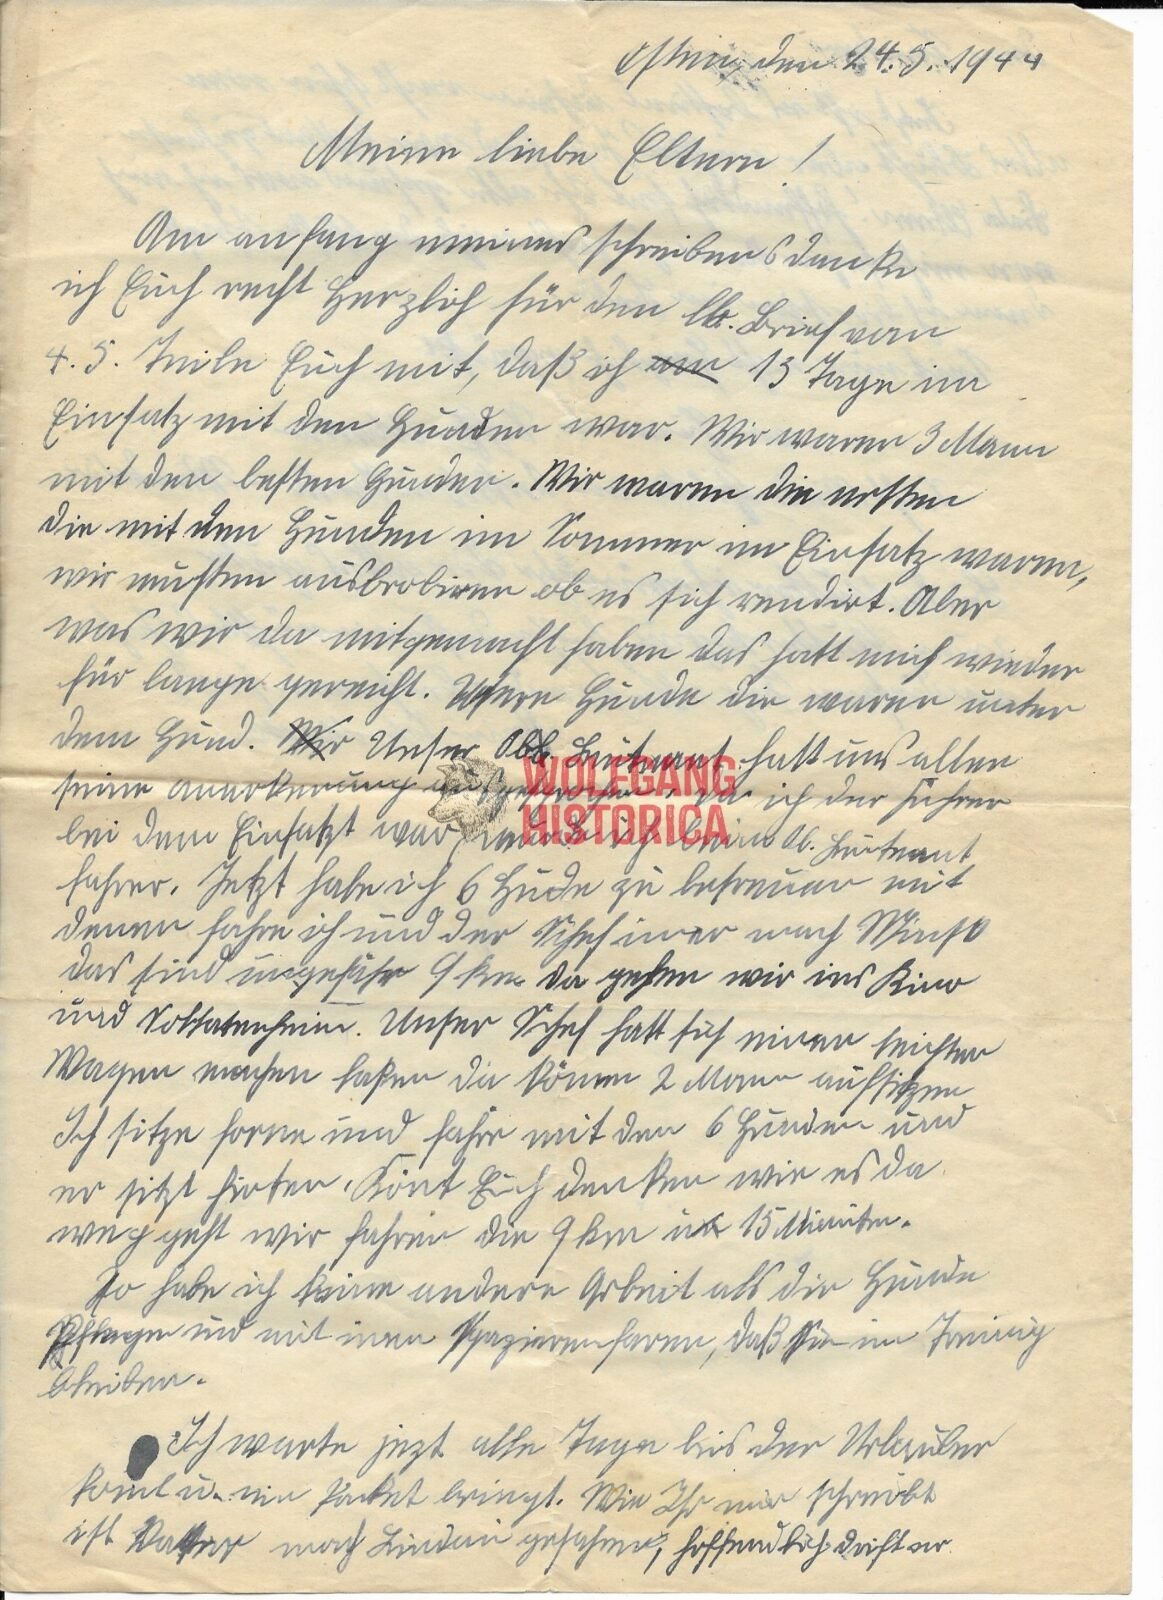 Osten, den 24.5.1944
Meine liebe Eltern!
Am anfang meines schreibens danke
ich Euch recht Herzlich für den lb. Brief vom
4.5. Teile Euch mit, daß ich 13 Tage im
Einsatz mit den Hunden war. Wir waren 3 Mann
mit den besten Hunden. Wir waren die ersten
die mit den Hunden im Sommer im Einsatz waren,
wir musten ausbrobiren ob es sich rendirt. Aber
was wir da mitgemacht haben das hatt mich wieder
für lange gereicht. Unsere Hunde die waren unter
dem Hund. Wir Unser Obl. Leutnant hatt uns allen
seine Anerkenung ausgesprochen. Da ich der Führer
WOLFGANG
HISTORICA
bei dem Einsatzt war, ich beim Ob. Leutnant
fahrer. Jetzt habe ich 6 Hude zu betreuen mit
denen fahre ich und der Schef imer nach Minsk
das sind ungefähr 9 km da gehen wir ins Kino
und Soldatenheim. Unser Schef hatt sich einen leichten
Wagen machen laßen da könen 2 Mann aufsitzen
Ich sitze forne und fahre mit den 6 Hunden und
er sitzt hinten. Könt Euch denken wie es da
weg geht wir fahren die 9 km in 15 Minuten.
So habe ich keine andere Arbeit als die Hunde
Pflegen und mit inen Spazierenfaren, daß sie im Traning
bleiben.
Ich warte jezt alle Tage bis der Urlauber
komt u. ein Packet bringt. Wie Ihr mir schreibt
ist Vatter nach Lindau gefahren, hoffendlich drift er